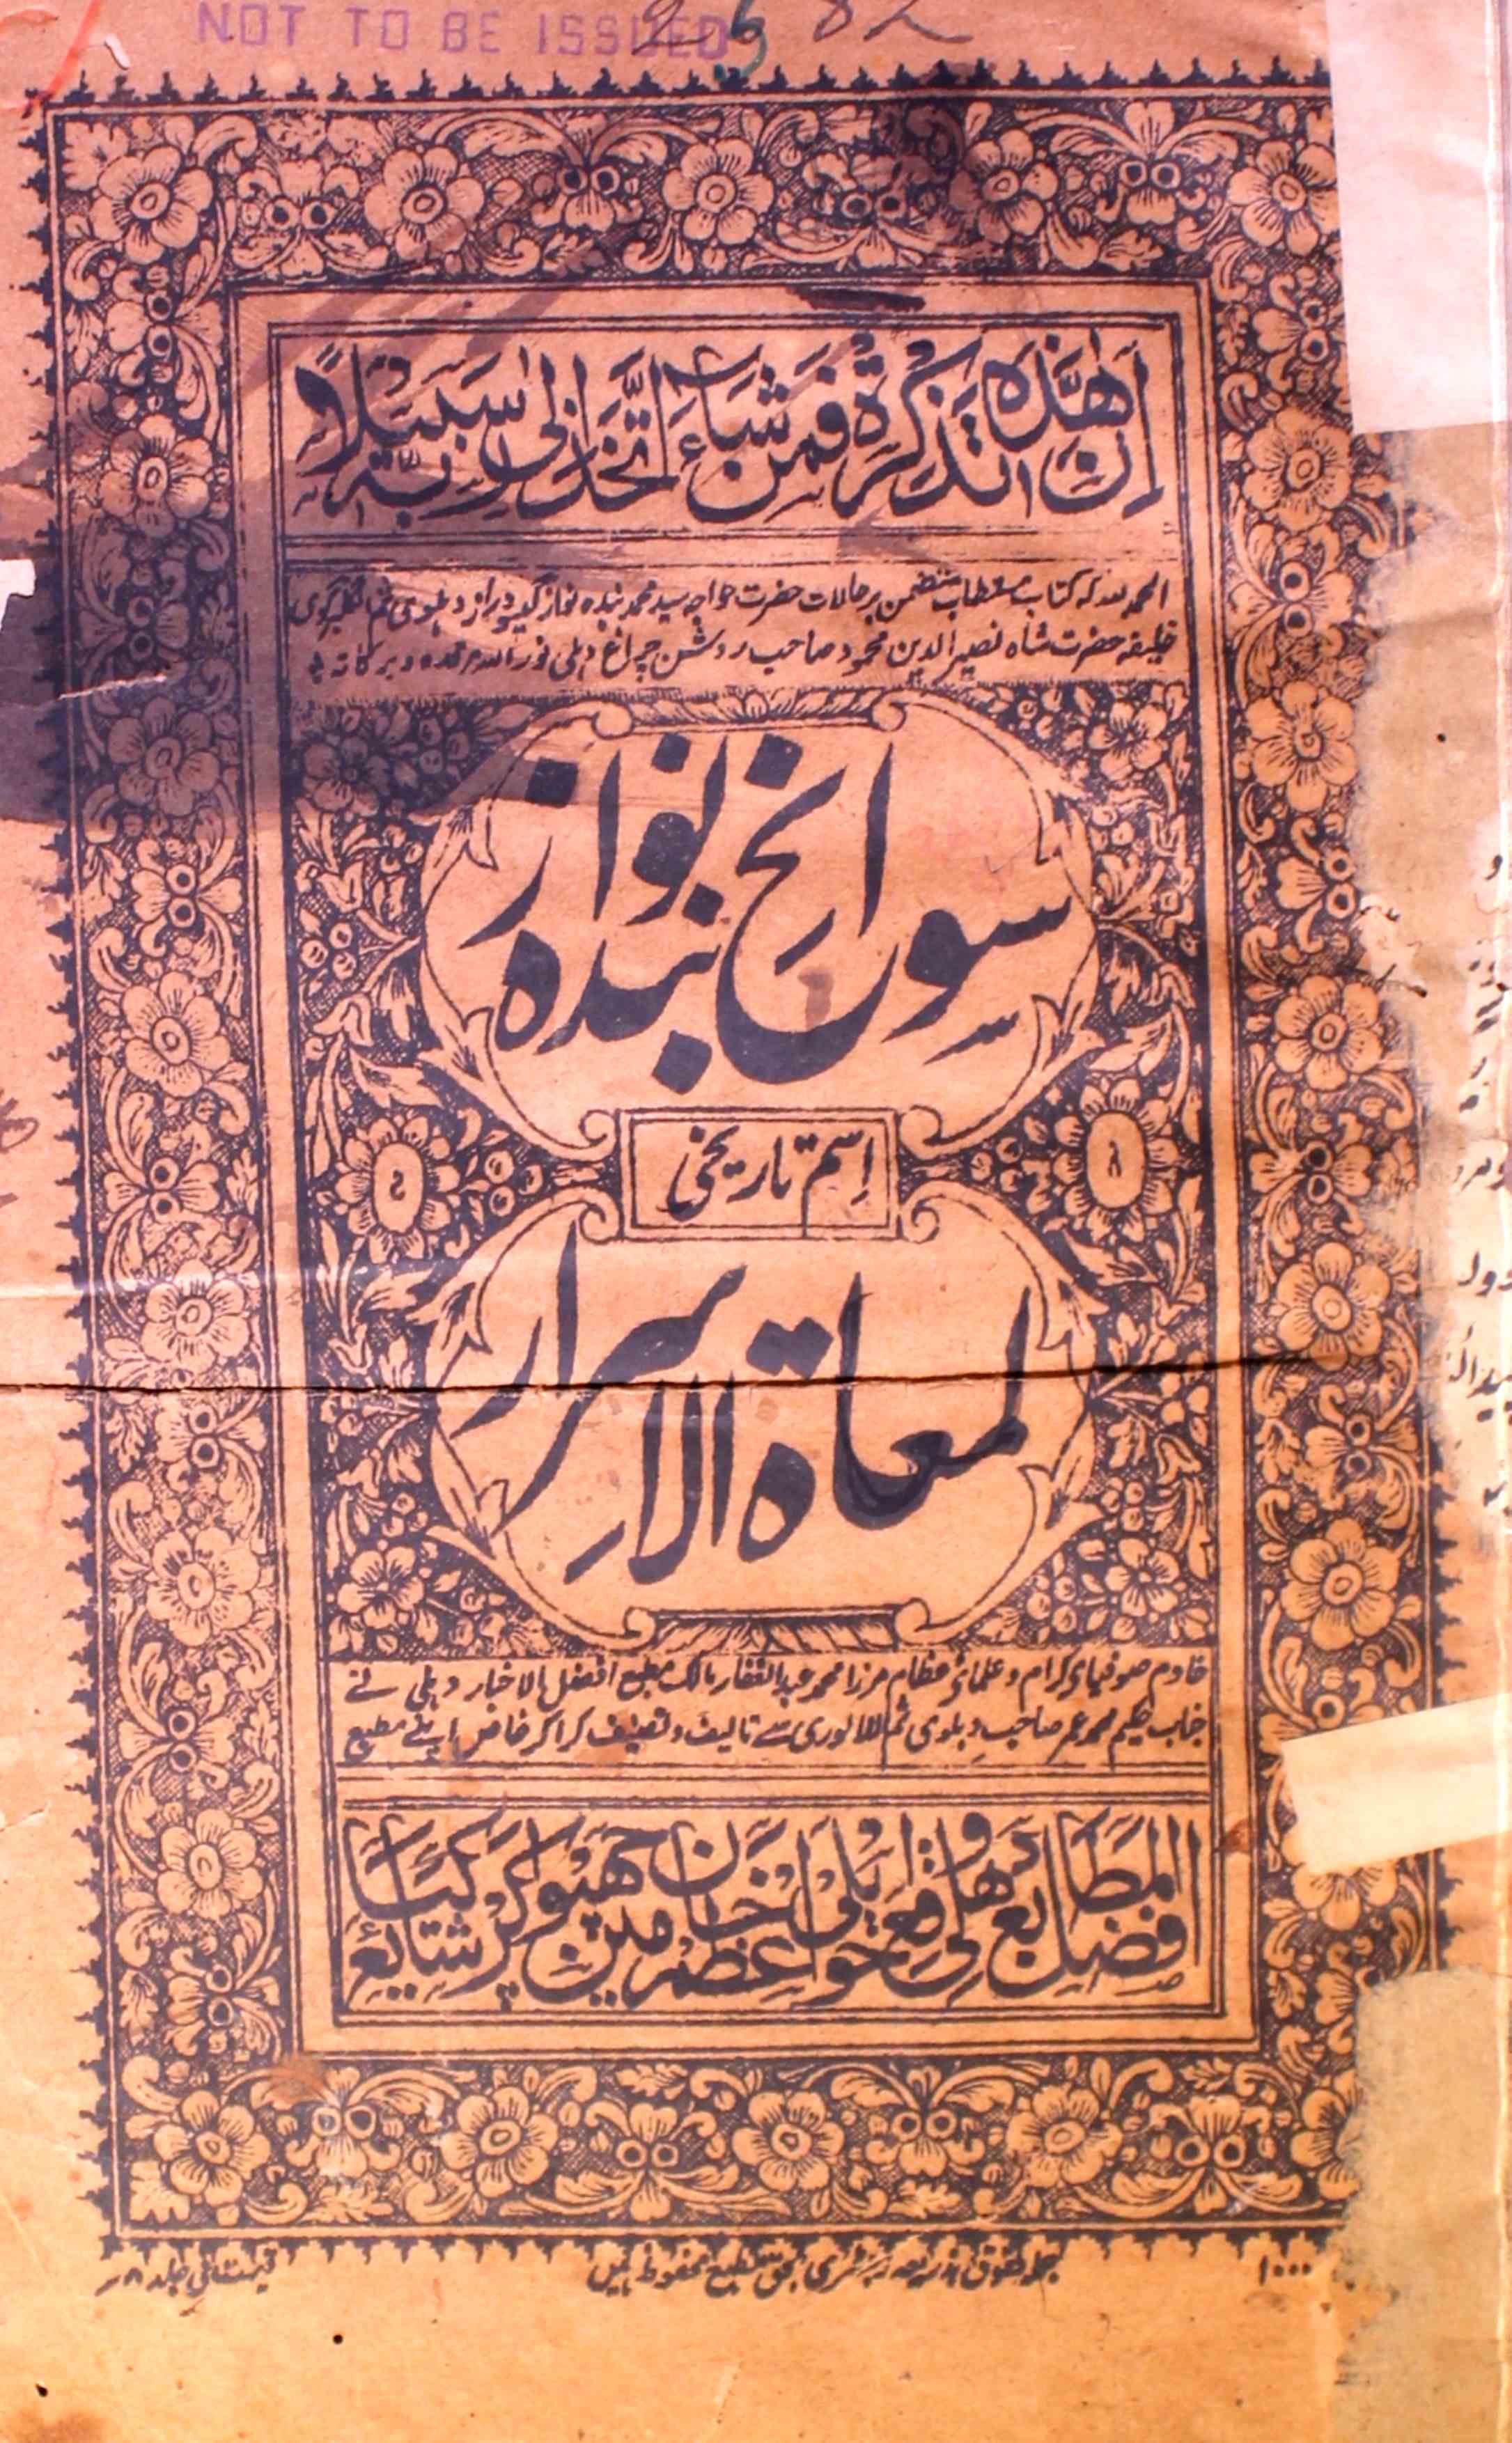 NOT TO BE ISSUED
ان هٰذه تذكرة فمن شاء اتخذ الى ربه سبيلا
الحمد للہ کہ کتاب مستطاب متضمن بر حالات حضرت خواجہ سید محمد بندہ نواز گیسو دراز دہلوی ثم گلبرگوی
خلیفہ حضرت شاہ نصیر الدین محمود صاحب روشن چراغ دہلی نور اللہ مرقدہ و برکاتہ
سوانح بندہ نواز
اسم تاریخی
لمعاۃ الاسرار
خادم صوفیای کرام و علمائ عظام مرزا محمد عبد الغفار مالک مطبع افضل الاخبار دہلی نے
جناب حکیم محمد عمر صاحب دہلوی ثم اللالوری سے تالیف و تصنیف کرا کر خاص اپنے مطبع
افضل المطابع واقع دہلی حویلی اعظم خان مین چھپوا کر شایع کیا
۱۰۰۰
جملہ حقوق بذریعہ رجسٹری بحق مطبع محفوظ ہیں
قیمت فی جلد ۸